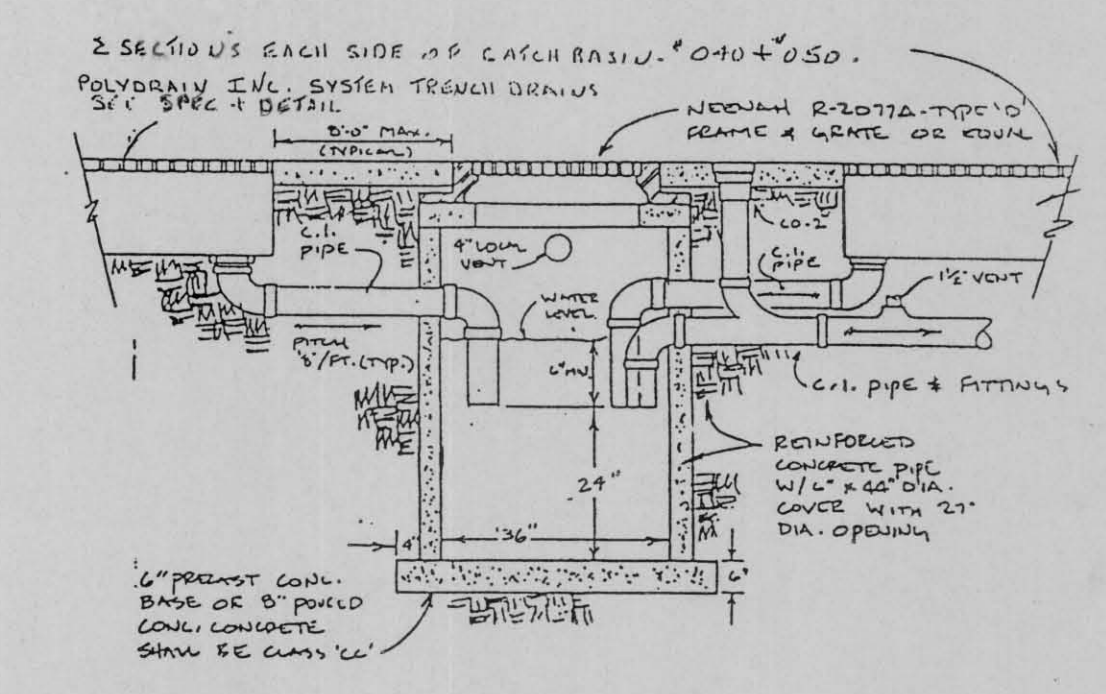 2 SECTIONS EACH SIDE OF CATCH BASIN. #040 + #050.
POLYDRAIN INC. SYSTEM TRENCH DRAINS
SEE SPEC + DETAIL
8'-0" MAX.
(TYPICAL)
NEENAH R-2077A-TYPE 'D'
FRAME & GRATE OR EQUAL
C.I.
PIPE
4" LOCAL
VENT
CO-2
C.I.
PIPE
1½" VENT
WATER
LEVEL
PITCH
⅛"/FT. (TYP.)
6" MIN
C.I. PIPE & FITTINGS
24"
REINFORCED
CONCRETE PIPE
W/6" x 44" DIA.
COVER WITH 27"
DIA. OPENING
4"
36"
6"
6" PRECAST CONC.
BASE OR 8" POURED
CONC. CONCRETE
SHALL BE CLASS 'CC'